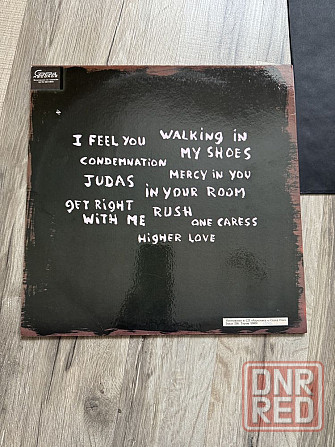 I FEEL YOU WALKING IN
MY SHOES
CONDEMNATION
MERCY IN YOU
JUDAS
IN YOUR ROOM
GET RIGHT
WITH ME RUSH
ONE CARESS
HIGHER LOVE
DNR
RED